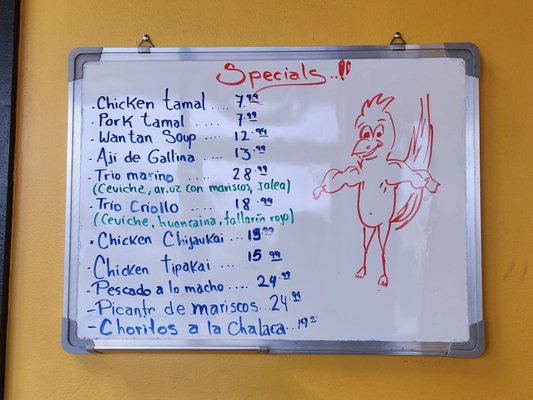 Specials..!!
- Chicken tamal .... 7.99
- Pork tamal .... 7.99
- Wantan Soup ... 12.99
- Ají de Gallina .... 13.99
- Trio marino .... 28.99
(Ceviche, arroz con mariscos, jalea)
- Trío Criollo .... 18.99
(Ceviche, huancaina, tallarin rojo)
- Chicken Chijaukai ... 15.99
- Chicken tipakai .... 15.99
- Pescado a lo macho .... 24.99
- Picante de mariscos ... 24.99
- Choritos a la Chalaca ... 19